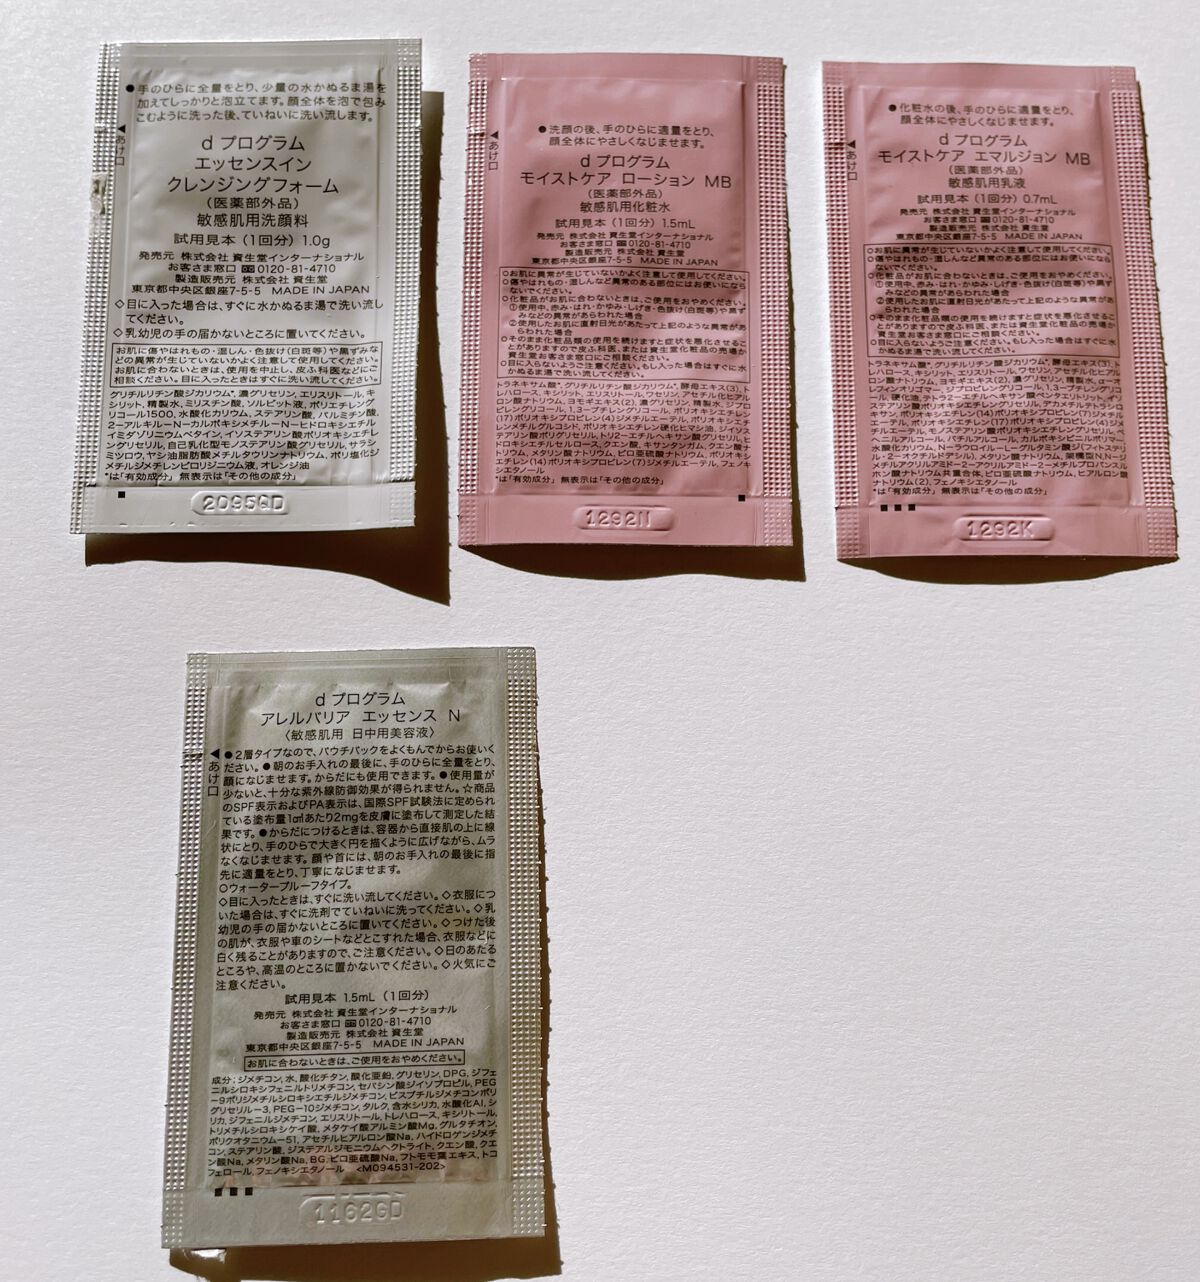 ●手のひらに全量をとり、少量の水かぬるま湯を
加えてしっかりと泡立てます。顔全体を泡で包み
こむように洗った後、ていねいに洗い流します。
◀あけ口
d プログラム
エッセンスイン
クレンジングフォーム
(医薬部外品)
敏感肌用洗顔料
試用見本(1回分) 1.0g
発売元 株式会社 資生堂インターナショナル
お客さま窓口 0120-81-4710
製造販売元 株式会社 資生堂
東京都中央区銀座7-5-5 MADE IN JAPAN
◇目に入った場合は、すぐに水かぬるま湯で洗い流し
てください。
◇乳幼児の手の届かないところに置いてください。
お肌に傷やはれもの・湿しん・色抜け(白斑等)や黒ずみな
どの異常が生じていないかよく注意して使用してください。
お肌に合わないときは、使用を中止し、皮ふ科医などにご
相談ください。目に入ったときはすぐに洗い流してください。
グリチルリチン酸ジカリウム*,濃グリセリン,エリスリトール,キ
シリット,精製水,ミリスチン酸,ソルビット液,ポリエチレング
リコール1500,水酸化カリウム,ステアリン酸,パルミチン酸,
2-アルキル-N-カルボキシメチル-N-ヒドロキシエチル
イミダゾリニウムベタイン,イソステアリン酸ポリオキシエチレ
ングリセリル,自己乳化型モノステアリン酸グリセリル,サラシ
ミツロウ,ヤシ油脂肪酸メチルタウリンナトリウム,ポリ塩化ジ
メチルジメチレンピロリジニウム液,オレンジ油
*は「有効成分」無表示は「その他の成分」
2095QD
●洗顔の後、手のひらに適量をとり、
顔全体にやさしくなじませます。
◀あけ口
d プログラム
モイストケア ローション MB
(医薬部外品)
敏感肌用化粧水
試用見本(1回分) 1.5mL
発売元 株式会社 資生堂インターナショナル
お客さま窓口 0120-81-4710
製造販売元 株式会社 資生堂
東京都中央区銀座7-5-5 MADE IN JAPAN
○お肌に異常が生じていないかよく注意して使用してください。
○傷やはれもの・湿しんなど異常のある部位にはお使いになら
ないでください。
○化粧品がお肌に合わないときは、ご使用をおやめください。
①使用中、赤み・はれ・かゆみ・しげき・色抜け(白斑等)や黒ず
みなどの異常があらわれた場合
②使用したお肌に直射日光があたって上記のような異常があ
らわれた場合
○そのまま化粧品類の使用を続けますと症状を悪化させるこ
とがありますので皮ふ科医、または資生堂化粧品の売場か
資生堂お客さま窓口にご相談ください。
○目に入らないようご注意ください。もし入った場合はすぐに水
かぬるま湯で洗い流してください。
トラネキサム酸*,グリチルリチン酸ジカリウム*,酵母エキス(3),ト
レハロース,キシリット,エリスリトール,ワセリン,アセチル化ヒア
ルロン酸ナトリウム,ヨモギエキス(2),濃グリセリン,精製水,ジプロ
ピレングリコール,1,3-ブチレングリコール,ポリオキシエチレン
(17)ポリオキシプロピレン(4)ジメチルエーテル,ポリオキシエチレ
ンメチルグルコシド,ポリオキシエチレン硬化ヒマシ油,ジイソス
テアリン酸ポリグリセリル,トリ2-エチルヘキサン酸グリセリル,ヒ
ドロキシエチルセルロース,クエン酸,キサンタンガム,クエン酸ナ
トリウム,メタリン酸ナトリウム,ピロ亜硫酸ナトリウム,ポリオキシ
エチレン(14)ポリオキシプロピレン(7)ジメチルエーテル,フェノキ
シエタノール
*は「有効成分」無表示は「その他の成分」
1292N
●化粧水の後、手のひらに適量をとり、
顔全体にやさしくなじませます。
◀あけ口
d プログラム
モイストケア エマルジョン MB
(医薬部外品)
敏感肌用乳液
試用見本(1回分) 0.7mL
発売元 株式会社 資生堂インターナショナル
お客さま窓口 0120-81-4710
製造販売元 株式会社 資生堂
東京都中央区銀座7-5-5 MADE IN JAPAN
○お肌に異常が生じていないかよく注意して使用してください。
○傷やはれもの・湿しんなど異常のある部位にはお使いになら
ないでください。
○化粧品がお肌に合わないときは、ご使用をおやめください。
①使用中、赤み・はれ・かゆみ・しげき・色抜け(白斑等)や黒ず
みなどの異常があらわれた場合
②使用したお肌に直射日光があたって上記のような異常があ
らわれた場合
○そのまま化粧品類の使用を続けますと症状を悪化させるこ
とがありますので皮ふ科医、または資生堂化粧品の売場か
資生堂お客さま窓口にご相談ください。
○目に入らないようご注意ください。もし入った場合はすぐに水か
ぬるま湯で洗い流してください。
トラネキサム酸*,グリチルリチン酸ジカリウム*,酵母エキス(3),ト
レハロース,キシリット,エリスリトール,ワセリン,アセチル化ヒアル
ロン酸ナトリウム,ヨモギエキス(2),濃グリセリン,精製水,
メチルアクリルアミド-2-アクリルアミド-2-メチルプロパンスル
ホン酸ナトリウム共重合体,ピロ亜硫酸ナトリウム,ヒアルロン酸
ナトリウム(2),フェノキシエタノール
*は「有効成分」無表示は「その他の成分」
1292K
d プログラム
アレルバリア エッセンス N
〈敏感肌用 日中用美容液〉
◀あけ口
●2層タイプなので、パウチパックをよくもんでからお使いく
ださい。●朝のお手入れの最後に、手のひらに全量をとり、
顔になじませます。からだにも使用できます。●使用量が
少ないと、十分な紫外線防御効果が得られません。☆商品
のSPF表示およびPA表示は、国際SPF試験法に定められ
ている塗布量1c㎡あたり2mgを皮膚に塗布して測定した結
果です。●からだにつけるときは、容器から直接肌の上に線
状にとり、手のひらで大きく円を描くように広げながら、ムラ
なくなじませます。顔や首には、朝のお手入れの最後に指
先に適量をとり、丁寧になじませます。
○ウォータープルーフタイプ。
◇目に入ったときは、すぐに洗い流してください。◇衣服につ
いた場合は、すぐに洗剤でていねいに洗ってください。◇乳
幼児の手の届かないところに置いてください。◇つけた後
の肌が、衣服や車のシートなどとこすれた場合、衣服などに
白く残ることがありますので、ご注意ください。◇日のあたる
ところや、高温のところに置かないでください。◇火気にご
注意ください。
試用見本 1.5mL(1回分)
発売元 株式会社 資生堂インターナショナル
お客さま窓口 0120-81-4710
製造販売元 株式会社 資生堂
東京都中央区銀座7-5-5 MADE IN JAPAN
お肌に合わないときは、ご使用をおやめください。
成分:ジメチコン,水,酸化チタン,酸化亜鉛,グリセリン,DPG,ジフェ
ニルシロキシフェニルトリメチコン,セバシン酸ジイソプロピル,PEG
-9ポリジメチルシロキシエチルジメチコン,ビスブチルジメチコンポリ
グリセリル-3,PEG-10ジメチコン,タルク,含水シリカ,水酸化Al,シ
リカ,ジフェニルジメチコン,エリスリトール,トレハロース,キシリトール,
トリメチルシロキシケイ酸,メタケイ酸アルミン酸Mg,グルタチオン,
ポリクオタニウム-51,アセチルヒアルロン酸Na,ハイドロゲンジメチ
コン,ステアリン酸,ジステアルジモニウムヘクトライト,クエン酸,クエ
ン酸Na,メタリン酸Na,BG,ピロ亜硫酸Na,フトモモ葉エキス,トコ
フェロール,フェノキシエタノール <M094531-202>
1162GD